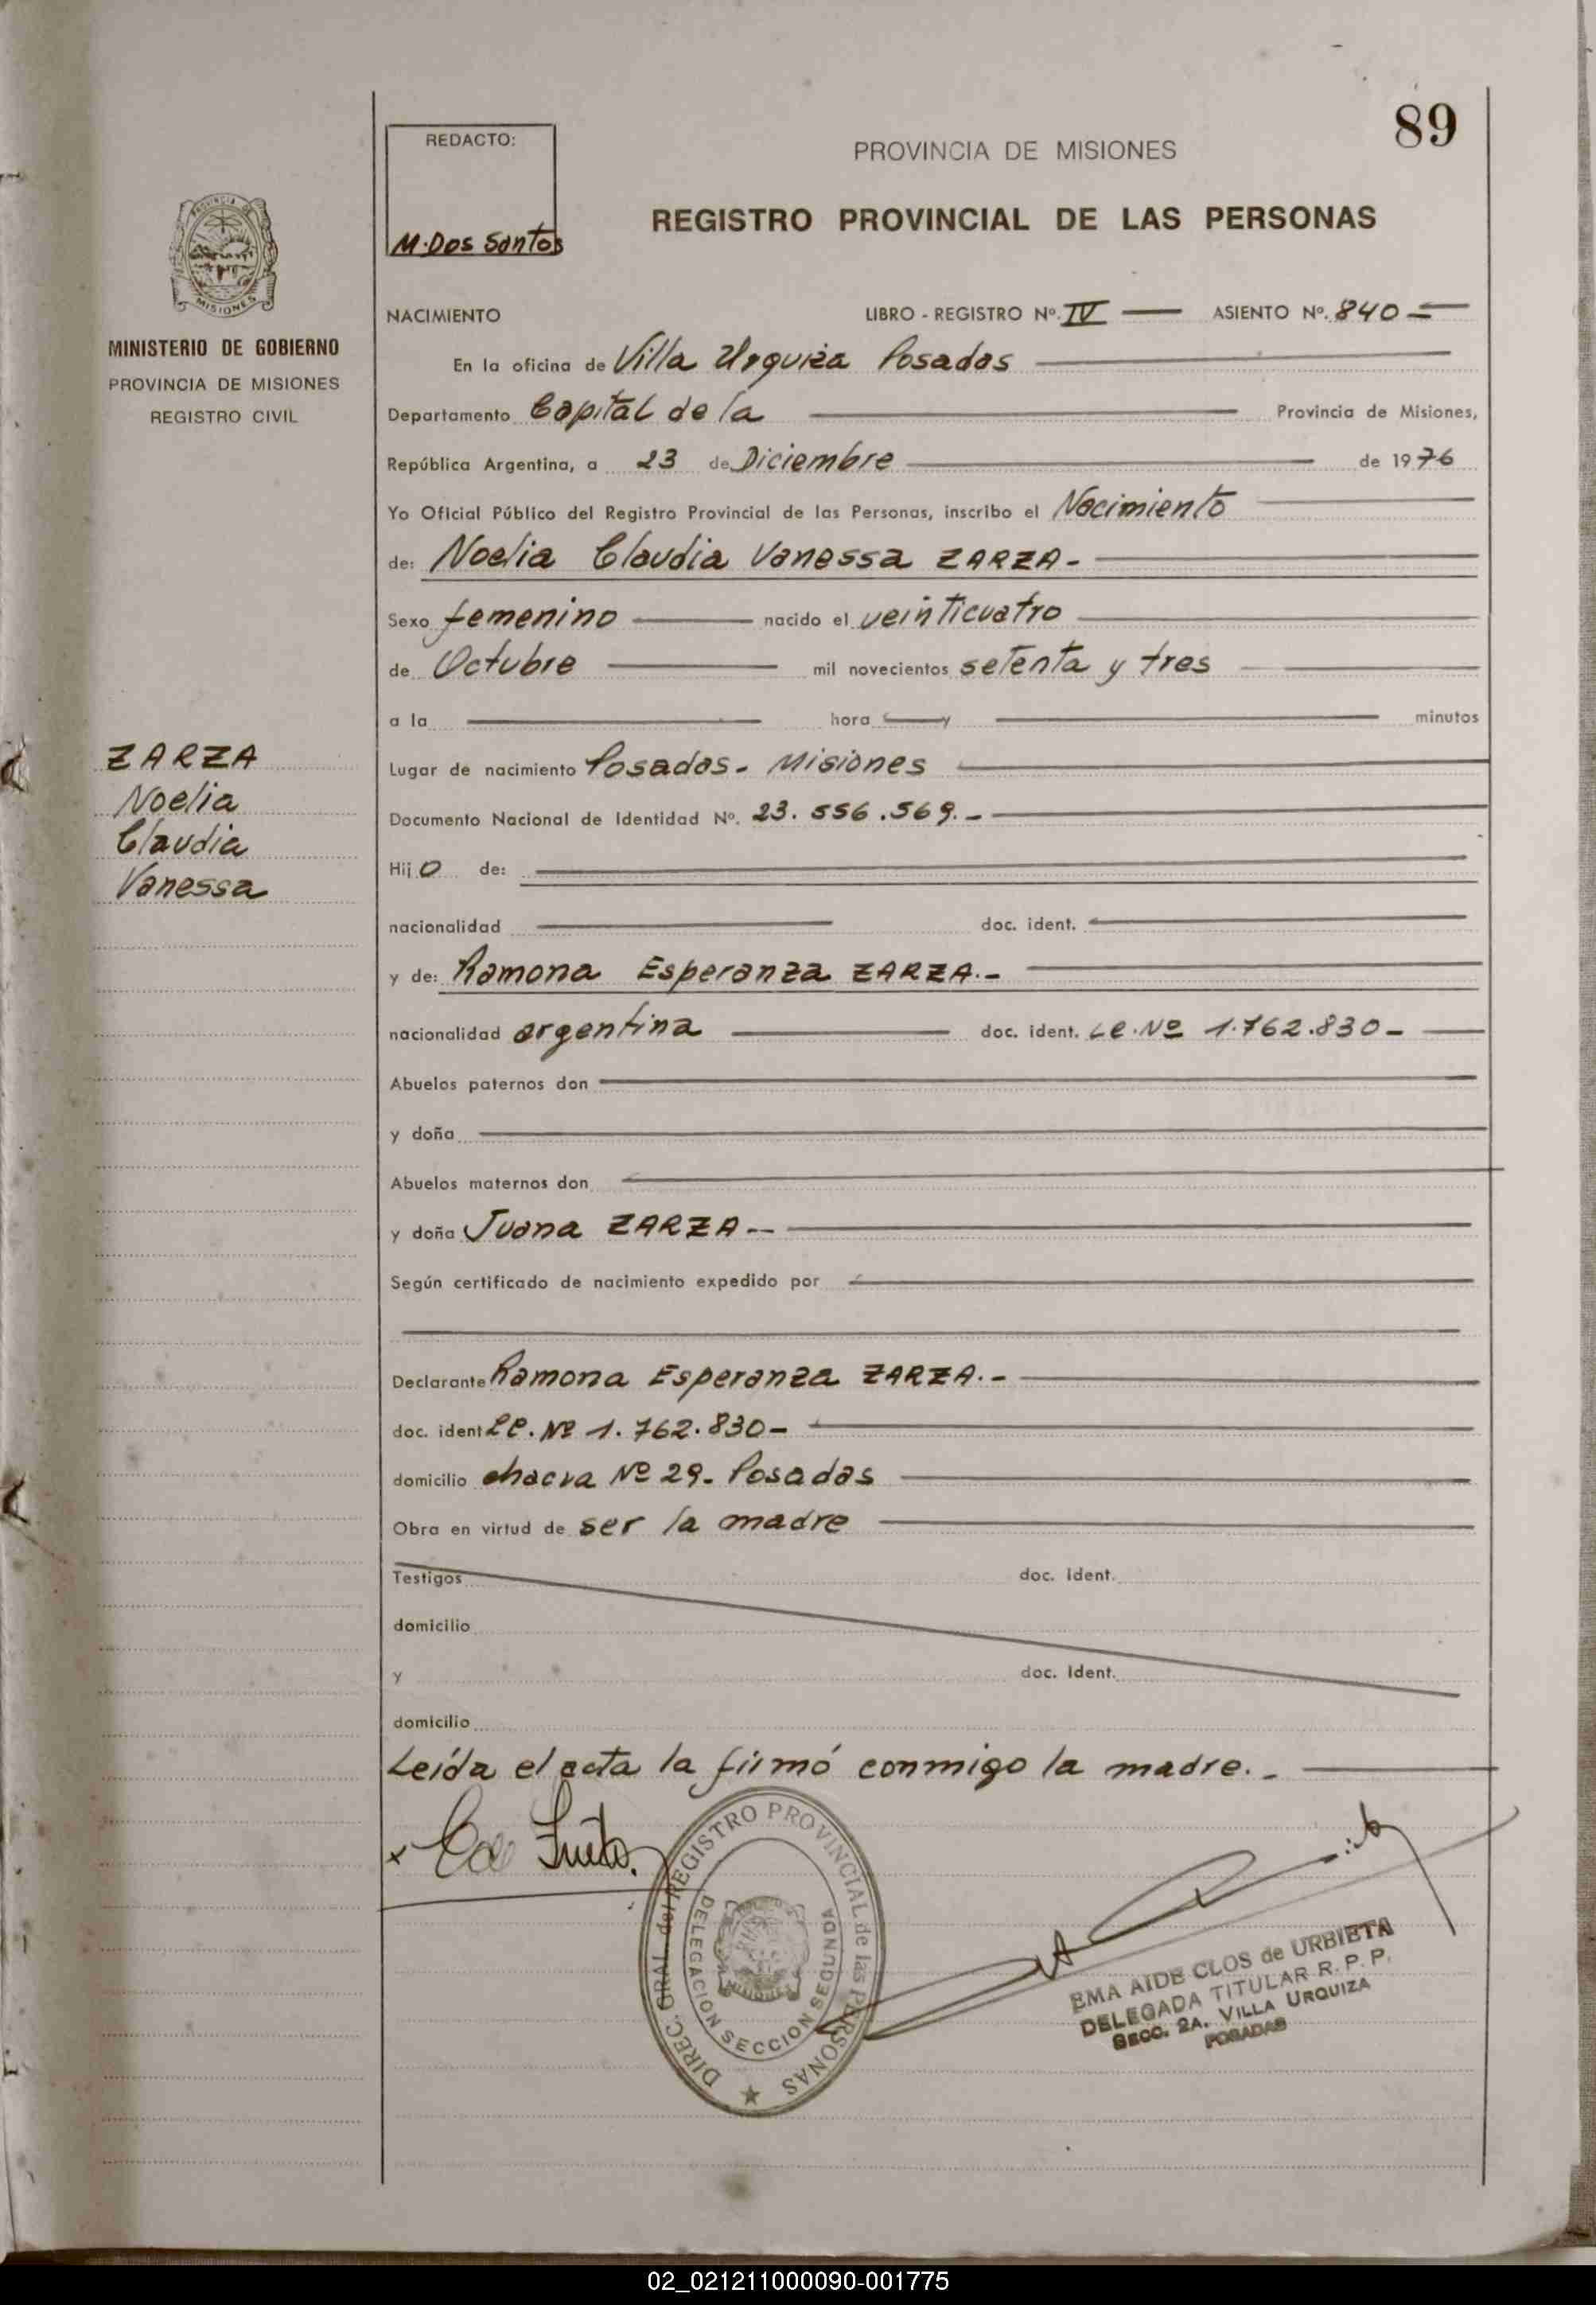 89
REDACTO:
M. Dos Santos
PROVINCIA DE MISIONES
REGISTRO PROVINCIAL DE LAS PERSONAS
PROVINCIA DE
MISIONES
MINISTERIO DE GOBIERNO
PROVINCIA DE MISIONES
REGISTRO CIVIL
NACIMIENTO LIBRO - REGISTRO Nº. IV ASIENTO Nº. 840
En la oficina de Villa Urquiza Posadas
Departamento Capital de la Provincia de Misiones,
República Argentina, a 23 de Diciembre de 1976
Yo Oficial Público del Registro Provincial de las Personas, inscribo el Nacimiento
de: Noelia Claudia Vanessa ZARZA-
Sexo femenino nacido el veinticuatro
de Octubre mil novecientos setenta y tres
a la hora y minutos
ZARZA
Noelia
Claudia
Vanessa
Lugar de nacimiento Posadas- Misiones
Documento Nacional de Identidad Nº. 23.556.569.-
Hijo de:
nacionalidad doc. ident.
y de: Ramona Esperanza ZARZA.-
nacionalidad argentina doc. ident. LC.Nº 1.762.830-
Abuelos paternos don
y doña
Abuelos maternos don
y doña Juana ZARZA--
Según certificado de nacimiento expedido por
Declarante Ramona Esperanza ZARZA.-
doc. ident LC. Nº 1.762.830-
domicilio chacra Nº 29- Posadas
Obra en virtud de ser la madre
Testigos doc. Ident.
domicilio
y doc. Ident.
domicilio
Leída el acta la firmó conmigo la madre.-
DIREC. GRAL. del REGISTRO PROVINCIAL de las PERSONAS
DELEGACION SECCION SEGUNDA
MISIONES
EMA AIDE CLOS de URBIETA
DELEGADA TITULAR R. P. P.
SECC. 2A. VILLA URQUIZA
POSADAS
02_021211000090-001775